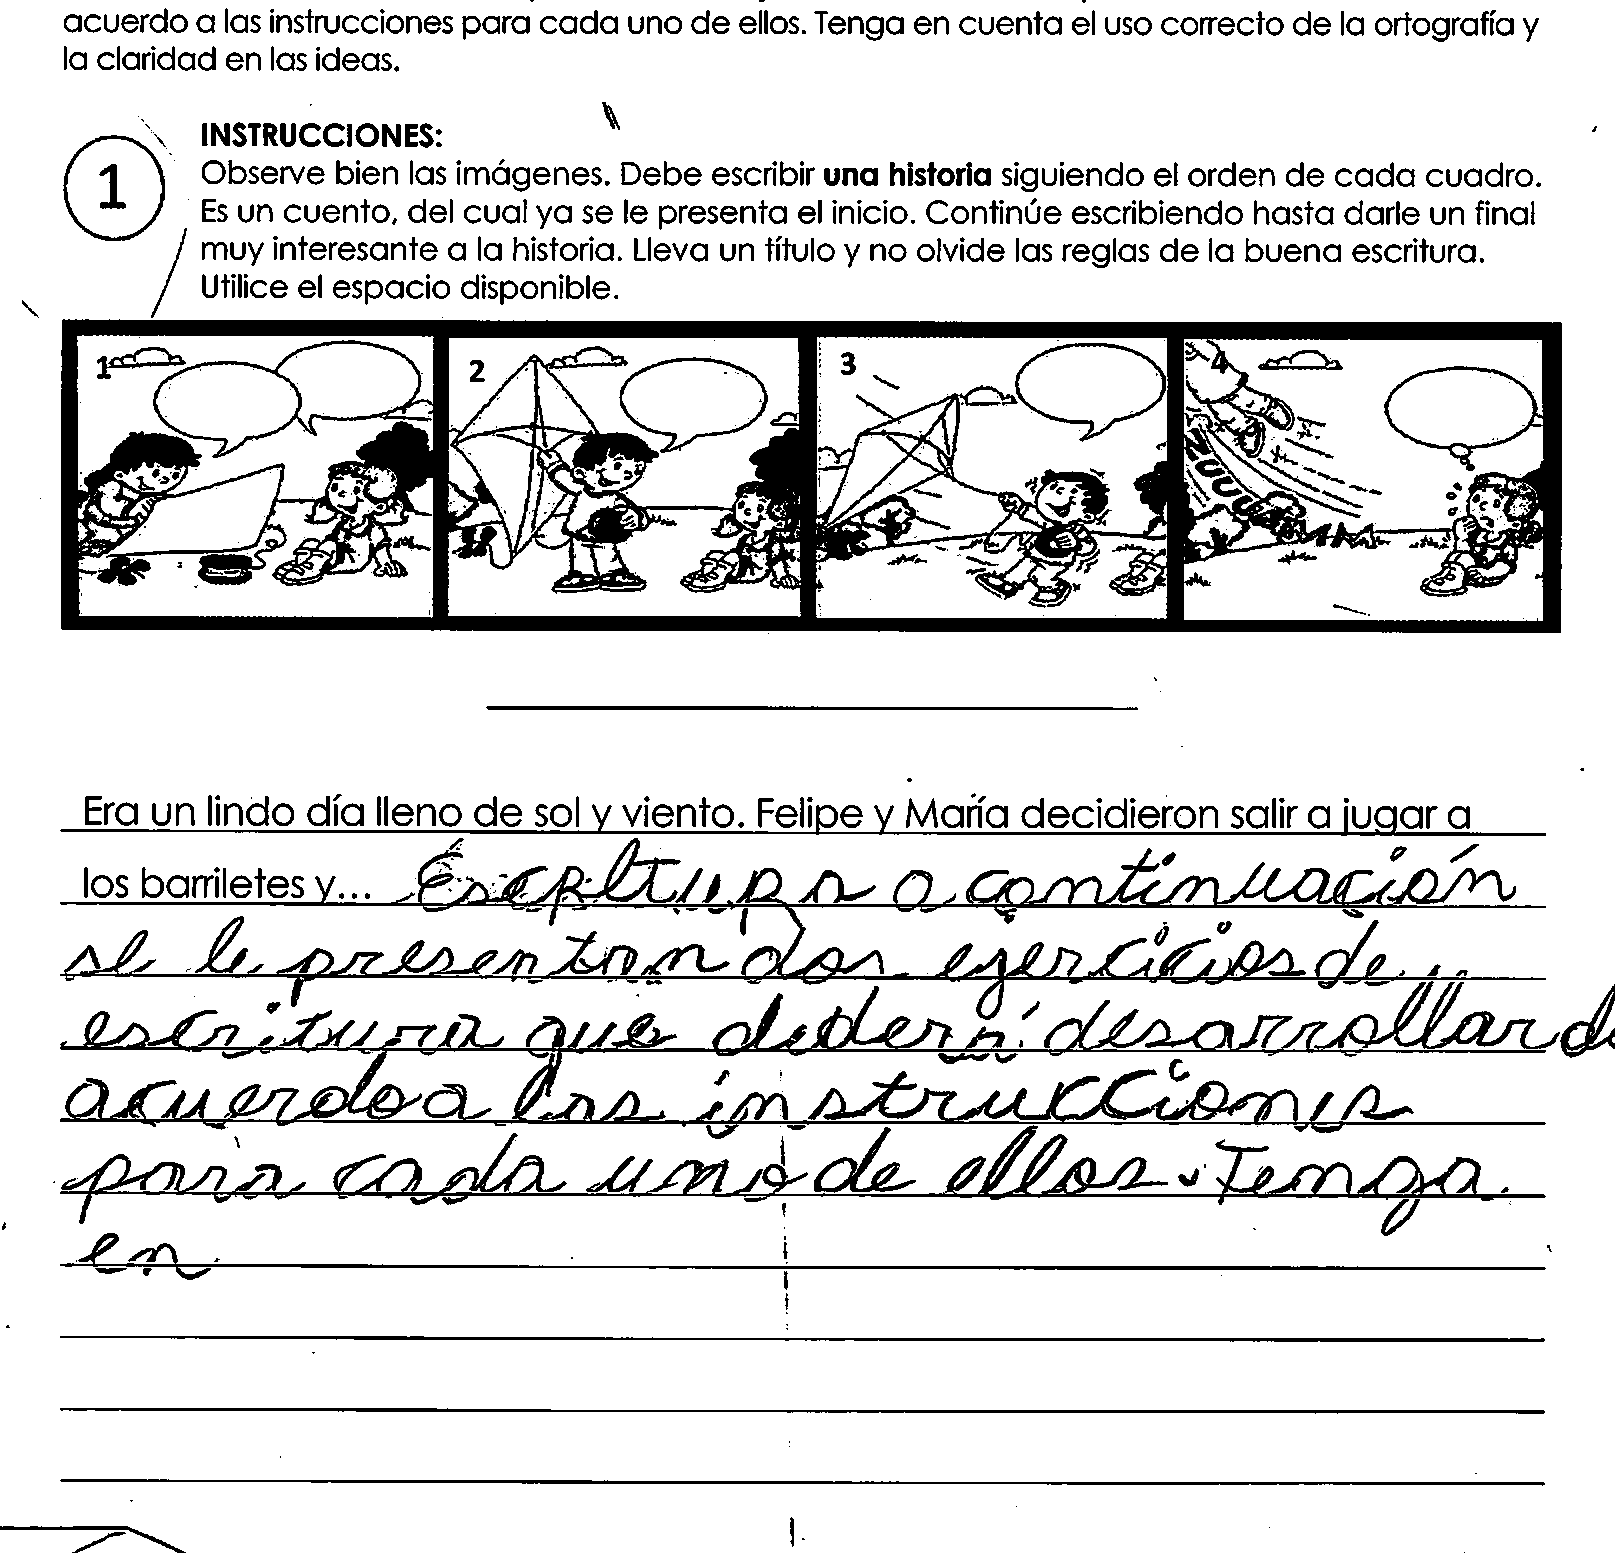 acuerdo a las instrucciones para cada uno de ellos. Tenga en cuenta el uso correcto de la ortografía y
la claridad en las ideas.
1
INSTRUCCIONES:
Observe bien las imágenes. Debe escribir una historia siguiendo el orden de cada cuadro.
Es un cuento, del cual ya se le presenta el inicio. Continúe escribiendo hasta darle un final
muy interesante a la historia. Lleva un título y no olvide las reglas de la buena escritura.
Utilice el espacio disponible.
1 2 3 4
Era un lindo día lleno de sol y viento. Felipe y María decidieron salir a jugar a
los barriletes y... Escritura a continuación
se le presentan dos ejercicios de
escritura que deberá desarrollar de
acuerdo a las instrucciones
para cada uno de ellos. Tenga
en